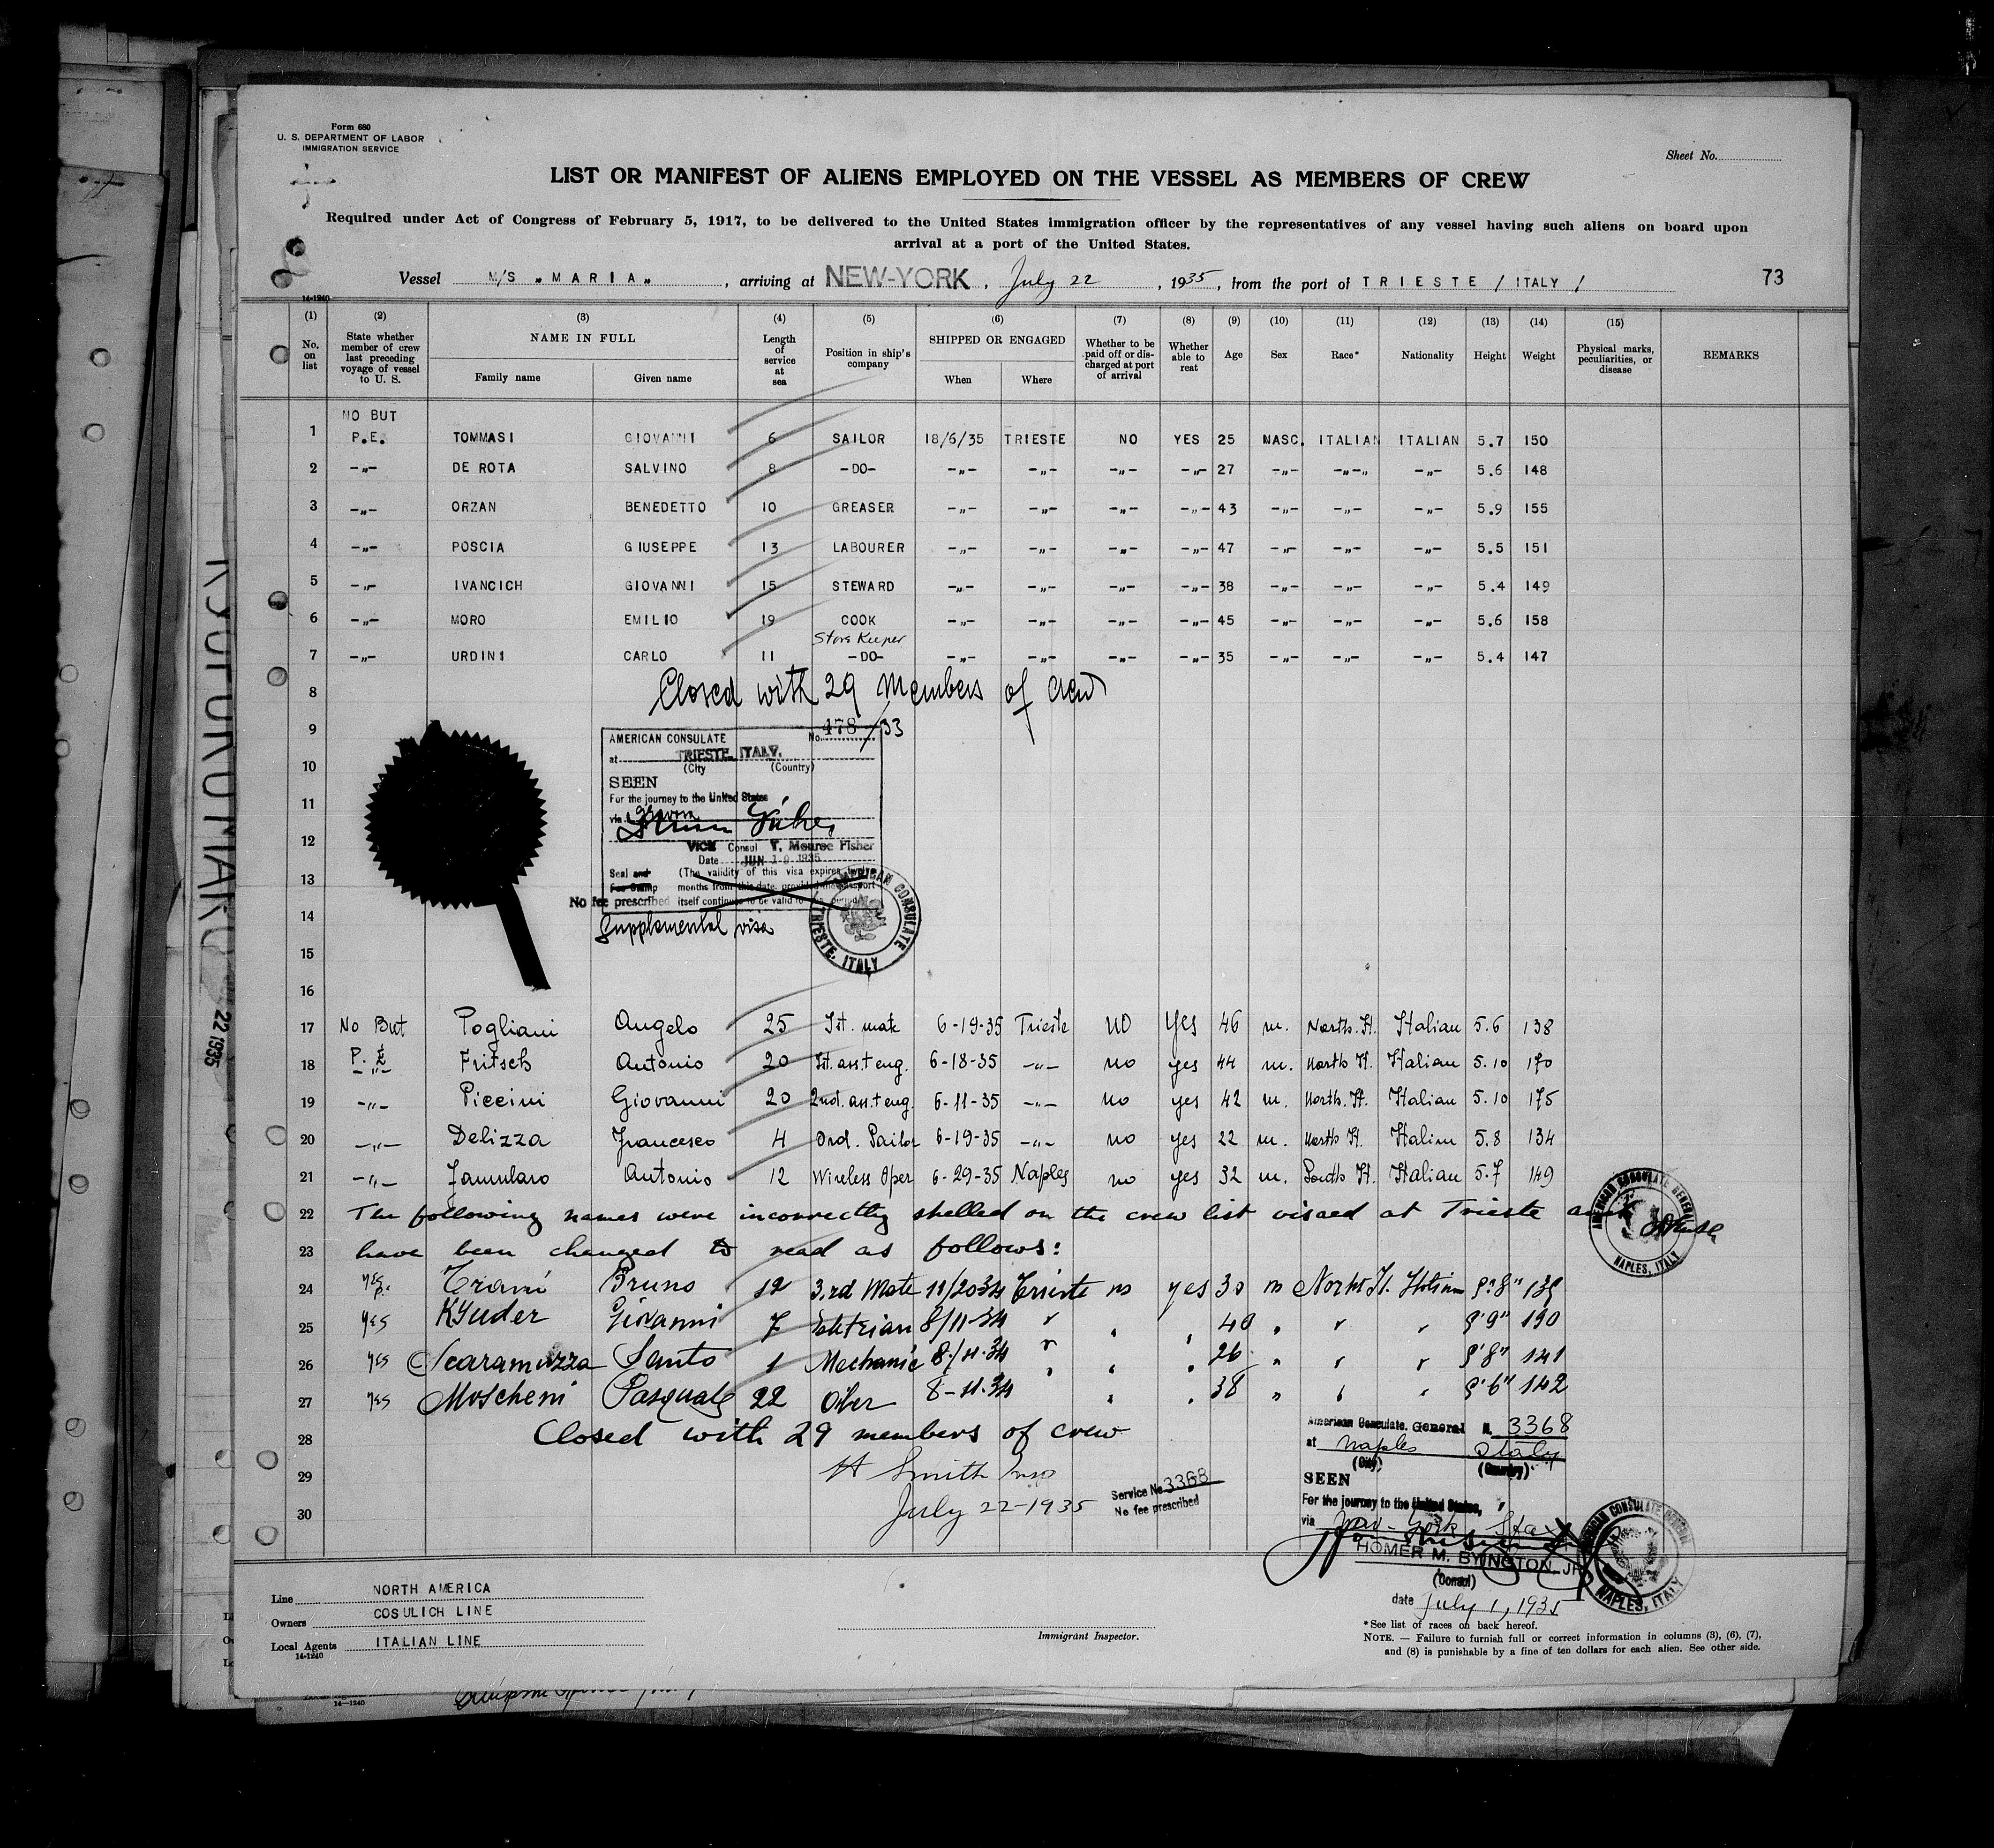 Form 680
U. S. DEPARTMENT OF LABOR
IMMIGRATION SERVICE
Sheet No.
LIST OR MANIFEST OF ALIENS EMPLOYED ON THE VESSEL AS MEMBERS OF CREW
Required under Act of Congress of February 5, 1917, to be delivered to the United States immigration officer by the representatives of any vessel having such aliens on board upon
arrival at a port of the United States.
Vessel M/S „MARIA„ , arriving at NEW-YORK , July 22 , 1935, from the port of TRIESTE / ITALY / 73
14-1240
(1) (2) (3) (4) (5) (6) (7) (8) (9) (10) (11) (12) (13) (14) (15)
No. on list State whether member of crew last preceding voyage of vessel to U. S. NAME IN FULL Family name Given name Length of service at sea Position in ship's company SHIPPED OR ENGAGED When Where Whether to be paid off or discharged at port of arrival Whether able to reat Age Sex Race* Nationality Height Weight Physical marks, peculiarities, or disease REMARKS
NO BUT
1 P.E. TOMMASI GIOVANNI 6 SAILOR 18/6/35 TRIESTE NO YES 25 MASC. ITALIAN ITALIAN 5.7 150
2 -„- DE ROTA SALVINO 8 -DO- -„- -„- -„- -„- 27 -„- -„-„ -„- 5.6 148
3 -„- ORZAN BENEDETTO 10 GREASER -„- -„- -„- -„- 43 -„- -„- -„- 5.9 155
4 -„- POSCIA GIUSEPPE 13 LABOURER -„- -„- -„- -„- 47 -„- -„- -„- 5.5 151
5 -„- IVANCICH GIOVANNI 15 STEWARD -„- -„- -„- -„- 38 -„- -„- -„- 5.4 149
6 -„- MORO EMILIO 19 COOK -„- -„- -„- -„- 45 -„- -„- -„- 5.6 158
Store Keeper
7 -„- URDINI CARLO 11 -DO- -„- -„- -„- -„- 35 -„- -„- -„- 5.4 147
8 Closed with 29 members of crew
9 AMERICAN CONSULATE No. 478/33
at TRIESTE, ITALY.
10 (City (Country)
SEEN
11 For the journey to the United States
via
12 VICE Consul T. Monroe Fisher
Date JUN 19 1935
13 Seal and (The validity of this visa expires
Fee Stamp months from this date, provided the passport
No fee prescribed itself continues to be valid
AMERICAN CONSULATE TRIESTE, ITALY
14 Supplemental visa
15
16
17 No But Pogliani Angelo 25 1st. mate 6-19-35 Trieste no Yes 46 m. North. It. Italian 5.6 138
18 P. E. -„- Fritsch Antonio 20 1st. ass.t eng. 6-18-35 -„- no yes 44 m. North It. Italian 5.10 170
19 -„- Piccini Giovanni 20 2nd. ass.t eng. 6-11-35 -„- no yes 42 m. North. It. Italian 5.10 175
20 -„- Delizza Francesco 4 Ord. Sailor 6-19-35 -„- no yes 22 m. North It. Italian 5.8 134
21 -„- Famularo Antonio 12 Wireless Oper 6-29-35 Naples no yes 32 m. South It. Italian 5.7 149
22 The following names were incorrectly spelled on the crew list visaed at Trieste and
AMERICAN CONSULATE GENERAL NAPLES, ITALY
23 have been changed to read as follows:
24 yes Triani Bruno 12 3.rd Mate 11/20 34 Trieste no yes 30 m North It. Italian 5'8" 139
25 yes Kyuder Giovanni 7 8/11-34 40 5'9" 190
26 yes Scaramuzza Santo 1 Mechanic 8/11.34 26 5'8" 141
27 yes Moscheni Pasquale 22 Oiler 8-11.34 38 5'6" 142
28 Closed with 29 members of crew
29 H Smith Insp
30 July 22-1935
Service No 3368
No fee prescribed
American Consulate, General N. 3368
at Naples Italy
(City) (Country)
SEEN
For the journey to the United States,
via New-York
HOMER M. BYINGTON, JR.
(Consul)
date July 1, 1935
AMERICAN CONSULATE GENERAL NAPLES, ITALY
Line NORTH AMERICA
Owners COSULICH LINE
Local Agents ITALIAN LINE
14-1240
Immigrant Inspector.
*See list of races on back hereof.
NOTE. — Failure to furnish full or correct information in columns (3), (6), (7),
and (8) is punishable by a fine of ten dollars for each alien. See other side.
22 1935
14-1240